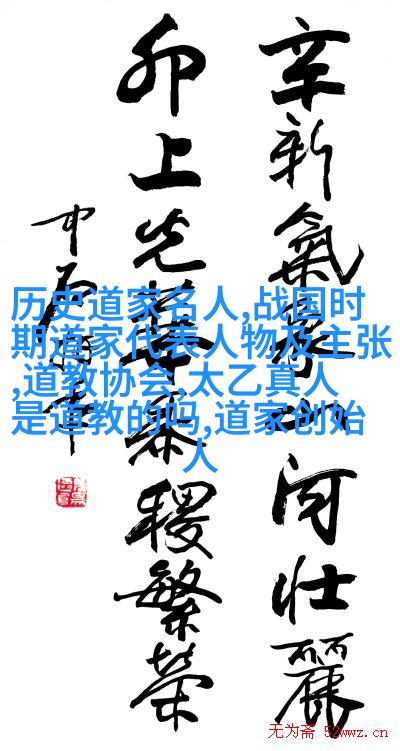 辛新氣象山河壯麗
卯上光華黍稷繁荣
中石
历史道家名人,战国时
期道家代表人物及主张
,道教协会,太乙真人
是道教的吗,道家创始
人
无为斋 52wwz.cn